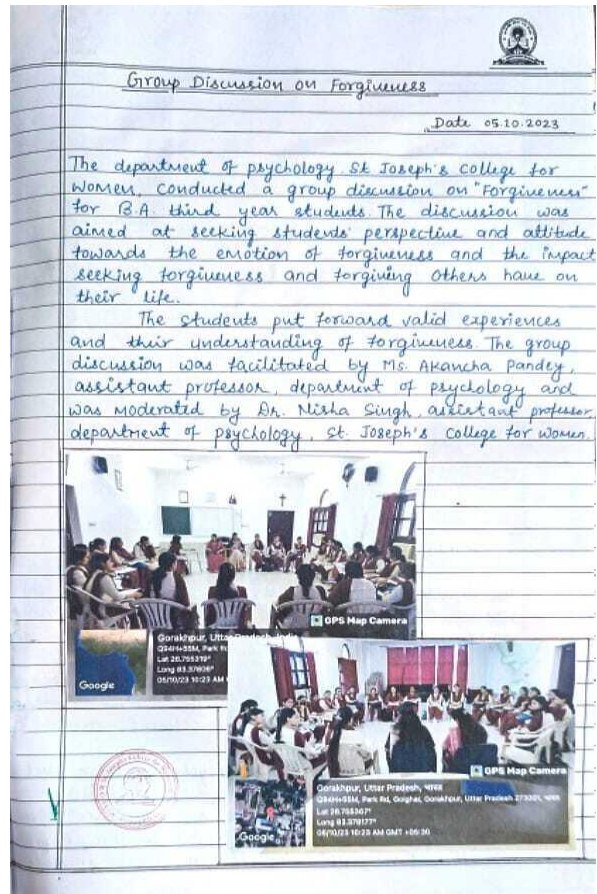 Group Discussion on Forgiveness
Date 05.10.2023
The department of psychology St Joseph's College for
Women, conducted a group discussion on "Forgiveness"
for B.A. third year students. The discussion was
aimed at seeking students' perspective and attitude
towards the emotion of forgiveness and the impact
seeking forgiveness and forgiving others have on
their life.
The students put forward valid experiences
and their understanding of forgiveness. The group
discussion was facilitated by Ms. Akancha Pandey,
assistant professor, department of psychology and
was moderated by Dr. Nisha Singh, assistant professor,
department of psychology, St. Joseph's College for Women.
GPS Map Camera
Gorakhpur, Uttar Pradesh, India
Park
Lat 26.755319°
Long
05/10/23 10:23 AM
Google
GPS Map Camera
Gorakhpur, Uttar Pradesh, भारत
Park Rd, Golghar, Gorakhpur, Uttar Pradesh 273001, भारत
Lat
Long
05/10/23 10:23 AM GMT +05:30
Google